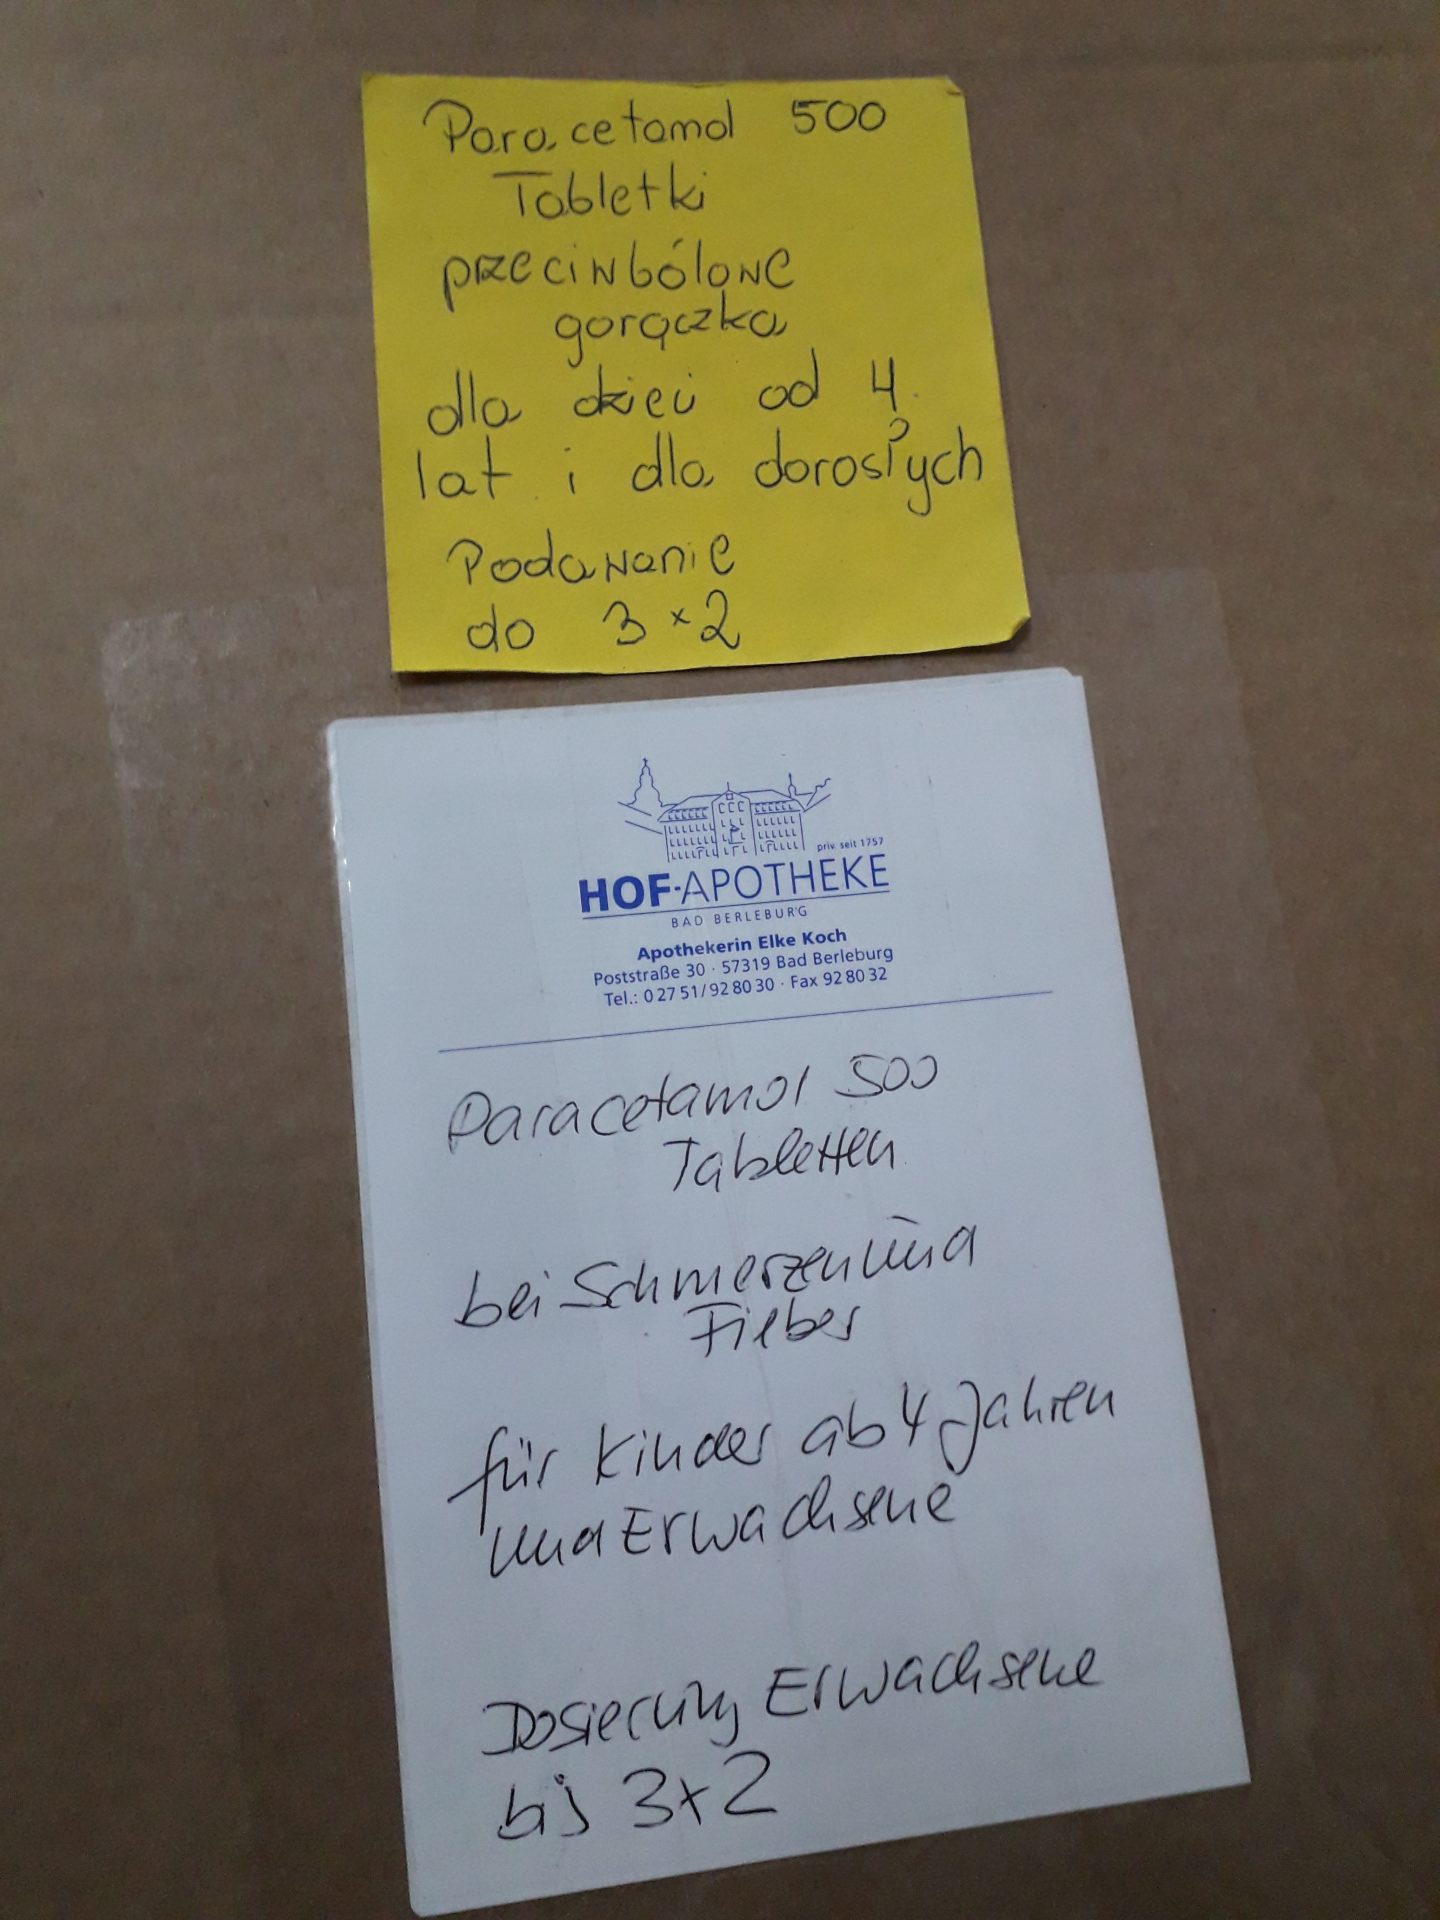 Paracetamol 500
Tabletki
przeciwbólowe
gorączka
dla dzieci od 4
lat i dla dorosłych
Podawanie
do 3 x 2
priv. seit 1757
HOF-APOTHEKE
BAD BERLEBURG
Apothekerin Elke Koch
Poststraße 30 · 57319 Bad Berleburg
Tel.: 0 27 51/92 80 30 · Fax 92 80 32
Paracetamol 500
Tabletten
bei Schmerzen und
Fieber
für Kinder ab 4 Jahren
und Erwachsene
Dosierung Erwachsene
bis 3x2